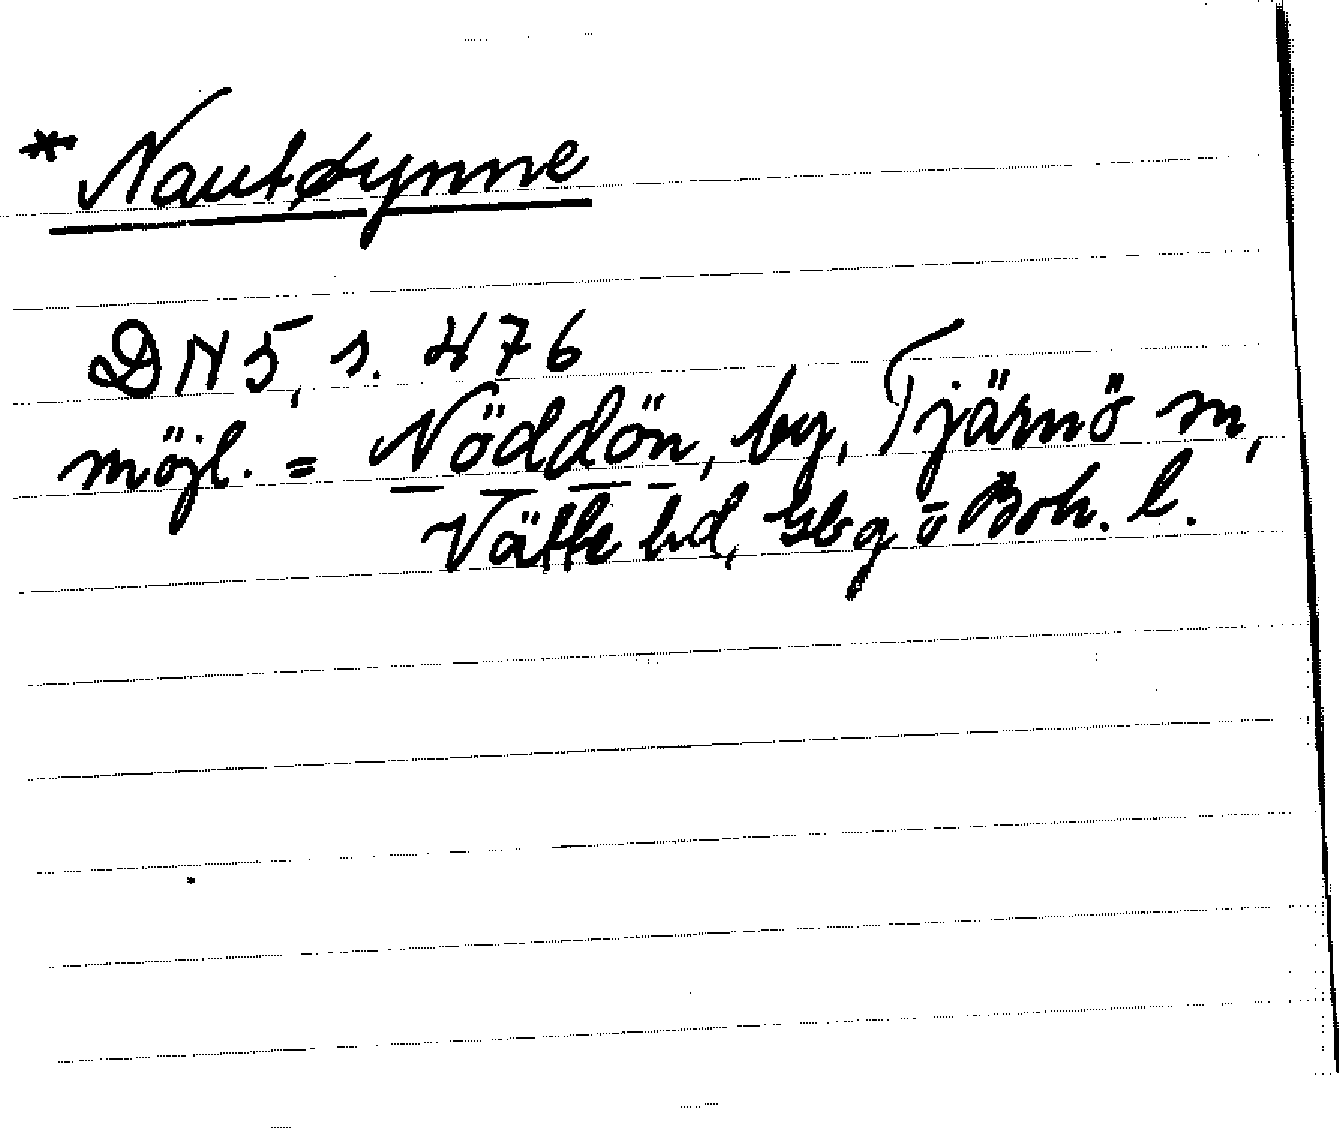 * Nautøynne
DN 5, s. 476
möjl. = Nöddön, by, Tjärnö sn,
Vätte hd, Gbg o Boh. l.